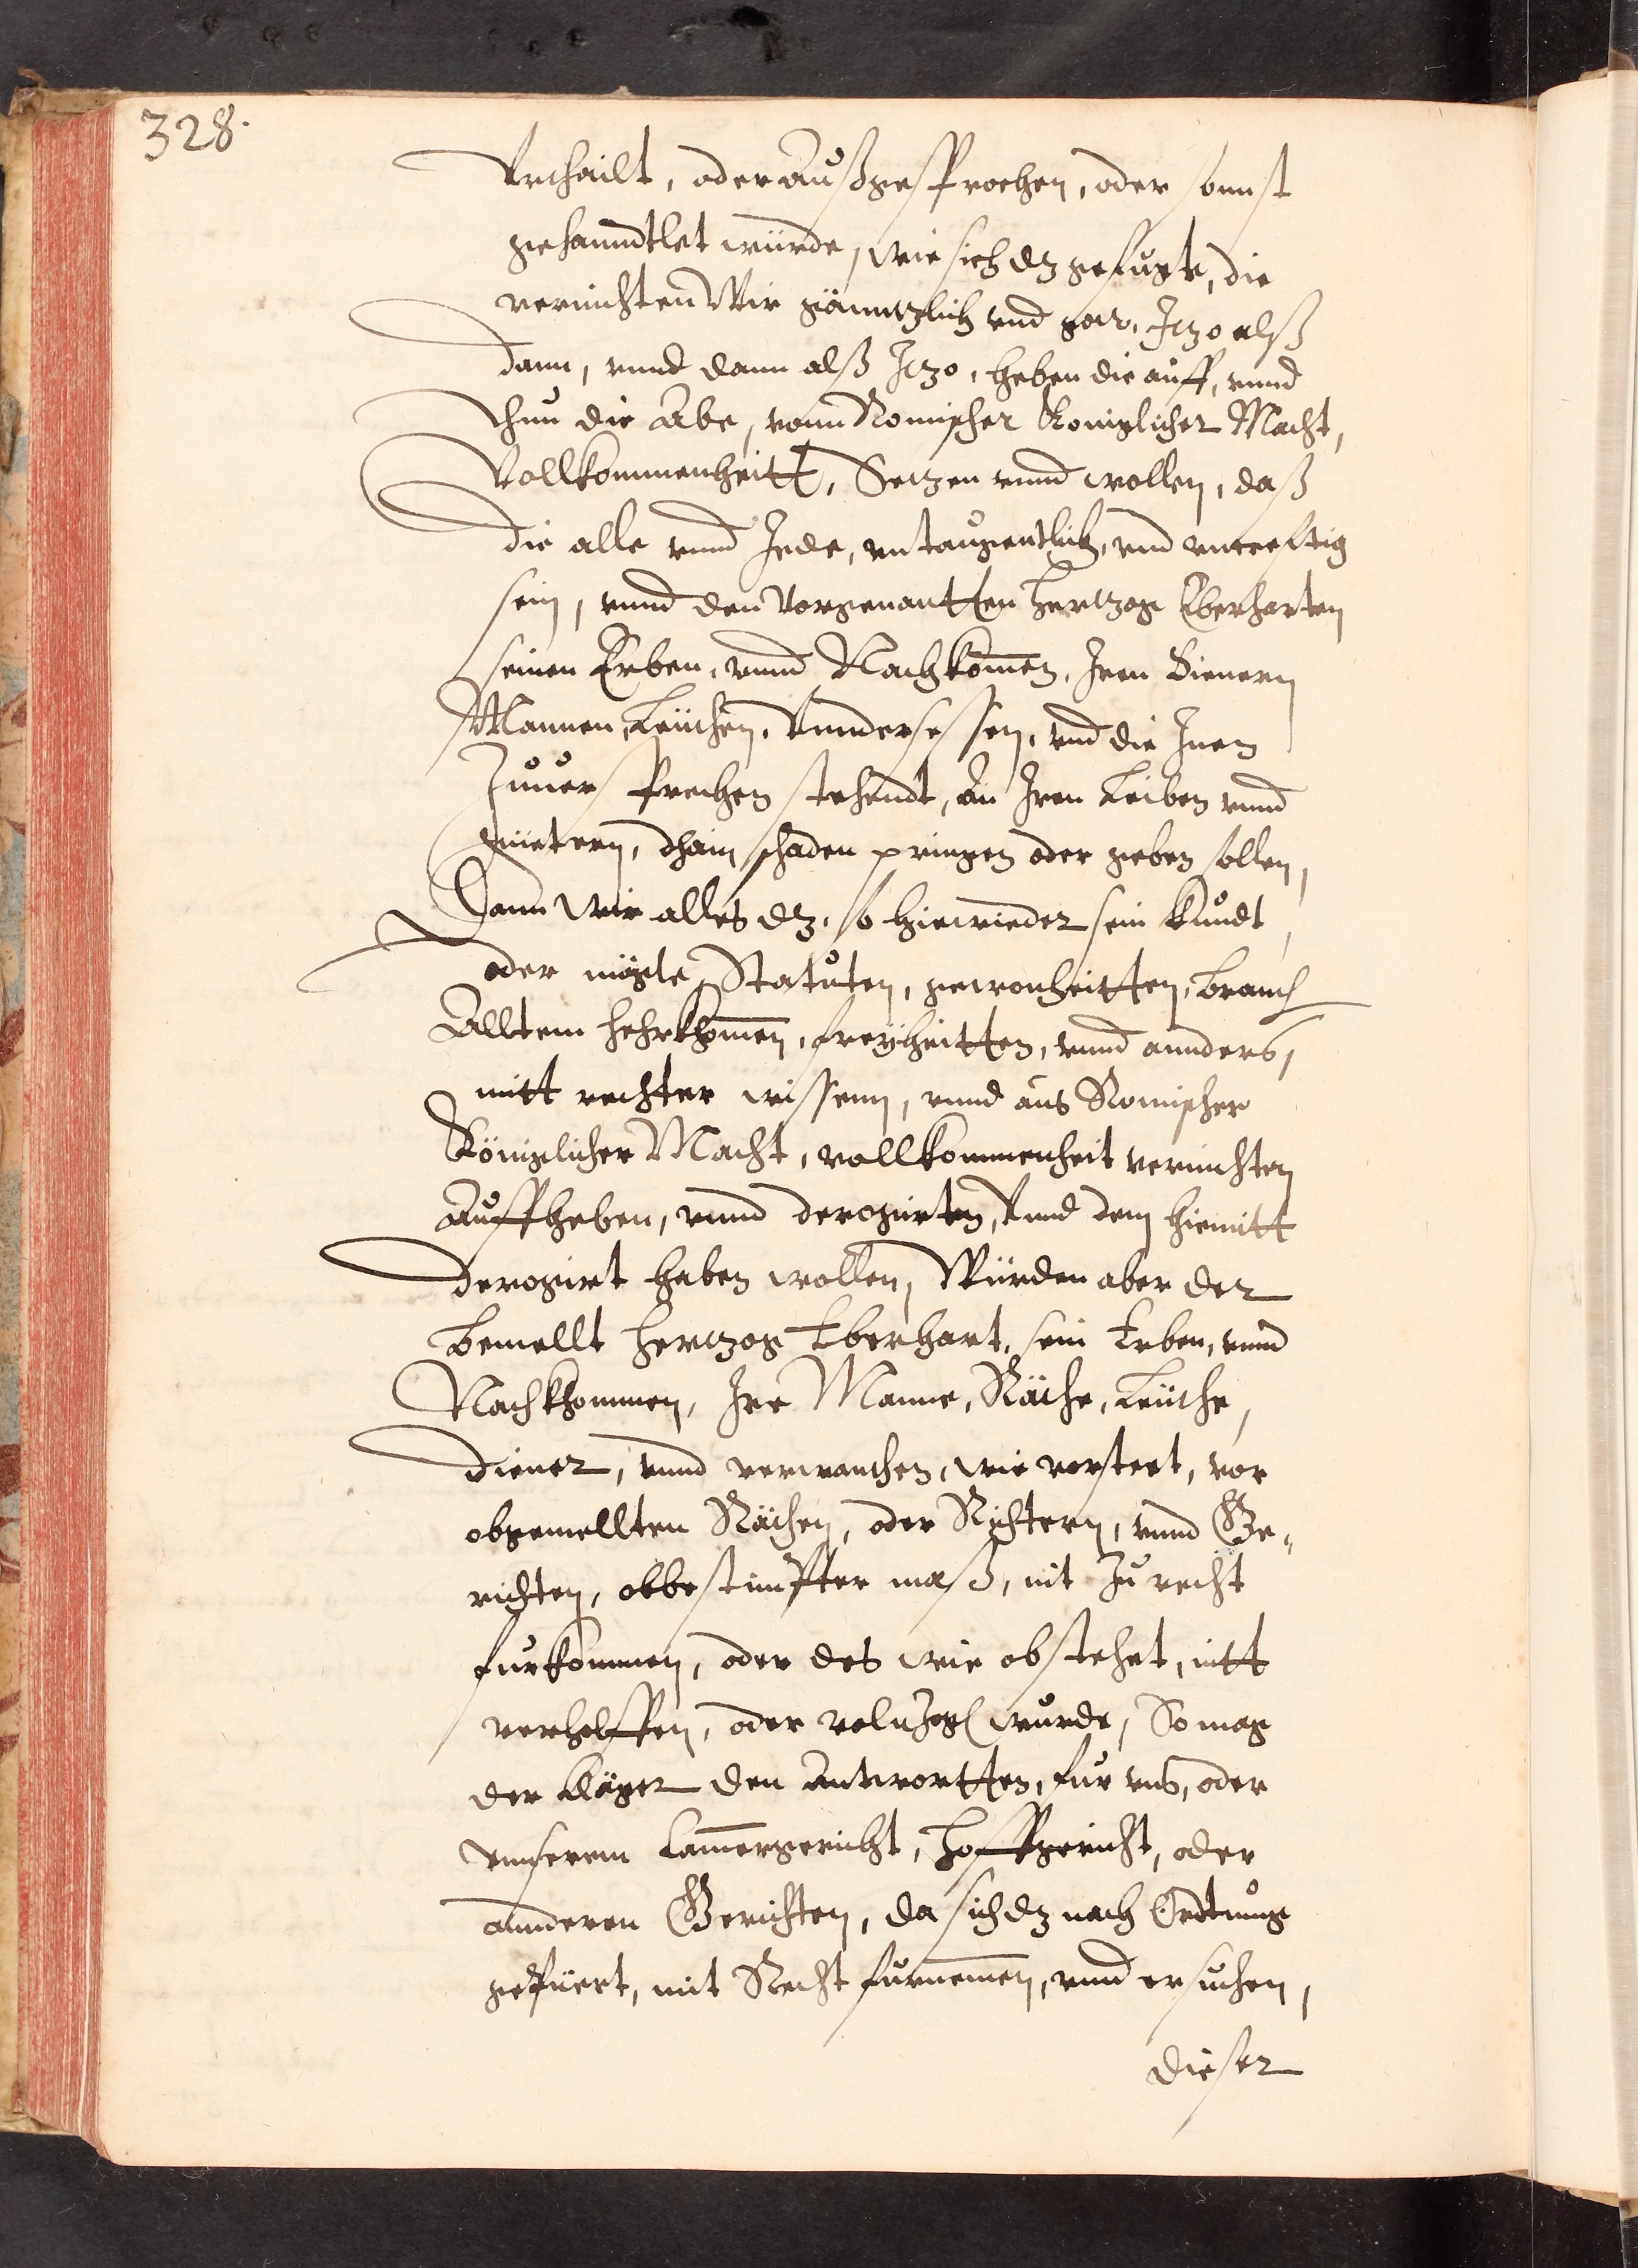 328.
Vrthailt, oder außgesprochen, oder sonnst
gehanndtlet würde, wie sich dz gefugte, die
vernichten Wir gänntzlich vnd gar, Itzo alß
dann, vnnd dann alß Itzo, heben die auff, vnnd
thun die Abe, vonn Romischer Koniglicher Macht,
Vollkommenheitt, Setzen vnnd wollen, daß
die alle vnnd Jede, vntaugentlich, vnd vncreftig
sein, vnnd den vorgenantten Hertzog Eberharten
seinen Erben, vnnd Nachkommen, Iren Dienern
Mannen, Leuthen, Vndersessen, vnd die Inen
Zuuersprechen stehendt, an Iren Leiben vnnd
guetern, dhain schaden pringen oder geben sollen,
Dann wir alles dz, so hiewieder sein kundt,
oder mögte, Statuten, gewonheitten, brauch
Alltem hehrkhommen, freyheitten, vnnd annders,
mitt rechter wissenn, vnnd aus Romischer
Königlicher Macht, vollkommenheit vernichten
Auffheben, vnnd derogirten, Vnnd dem hiemitt
derogirt haben wollen, Würden aber der
bemellt Hertzog Eberhart, sein Erben, vnnd
Nachkhommen, Ire Manne, Räthe, Leuthe,
diener, vnnd verwanthen, wie vorsteet, vor
obgemellten Räthen, oder Richtern, vnnd Ge-
richten, obbestimpter maß, nit zu recht
furkommen, oder des wie obstehet, nitt
verholffen, oder volnzogen wurde, So mag
der Kläger den Antwortten, fur vns, oder
vnnserem Camergericht, Hoffgericht, oder
annderen Gerichten, da sich dz nach Ordtnung
gepüert, mit Recht furnemmen, vnnd ersuchen,
dieser